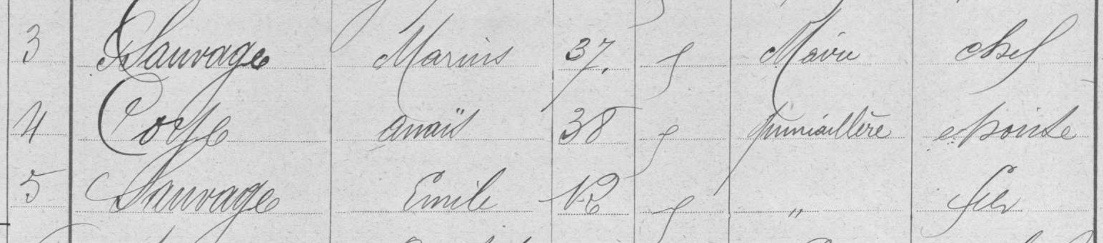 3 Sauvage Marius 37. f Maire chef
4 anaïs 38 f épouse
5 Sauvage Emile 12 f " fils